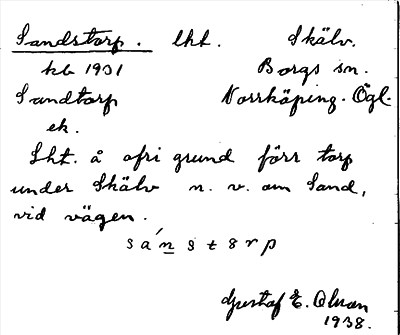 Sandstorp. lht. Skälv.
kb 1931 Borgs sn.
Sandtorp Norrköping. Ögl.
ek.
Lht. å ofri grund förr torp
under Skälv n. v. om Sand,
vid vägen.
sánstorp
Gustaf E. Olsson
1938.